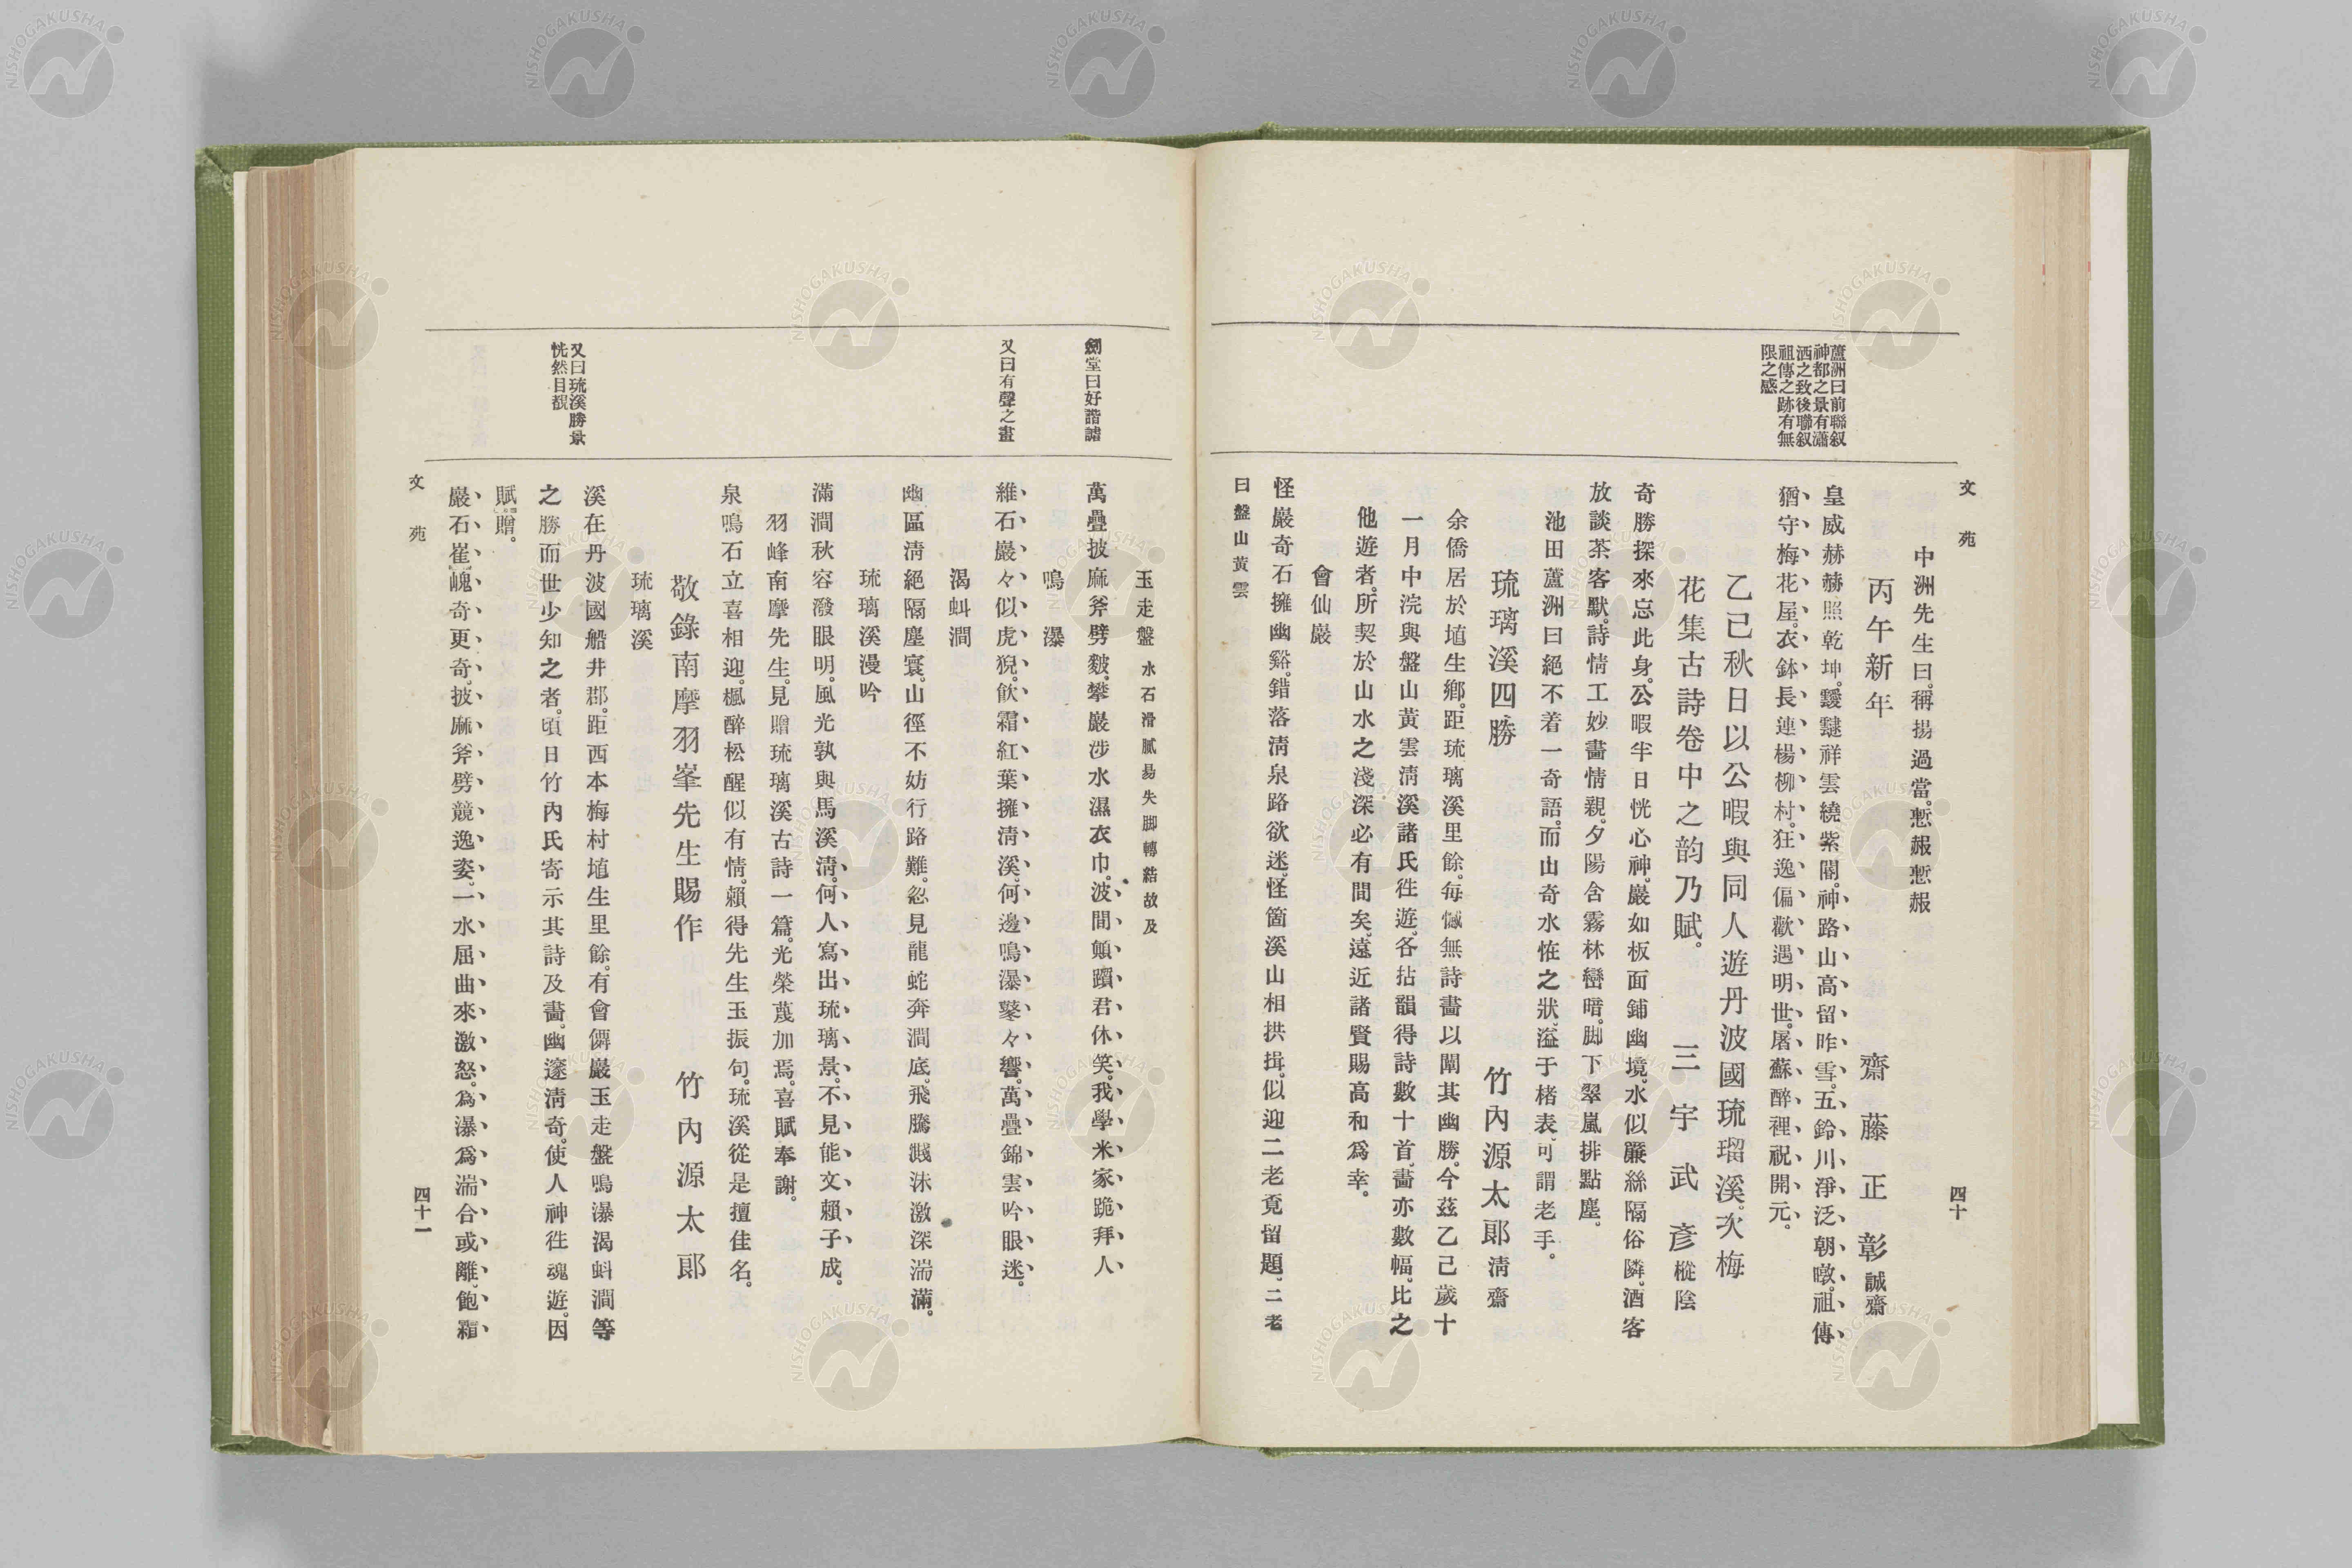 文苑
四十
蘆洲曰前聯叙
神都之景有瀟
洒之致後聯叙
祖傳之跡有無
限之感
中洲先生曰。稱揚過當。慙赧慙赧
丙午新年 齋藤正彰 誠齋
皇威赫赫照乾坤。靉靆祥雲繞紫閣。神路山高留昨雪。五鈴川淨泛朝暾。祖傳
猶守梅花屋。衣鉢長連楊柳村。狂逸偏歡遇明世。屠蘇醉裡祝開元。
乙己秋日以公暇與同人遊丹波國琉瑠溪。次梅
花集古詩卷中之韵乃賦。 三宇武彥 樅陰
奇勝探來忘此身。公暇半日恍心神。巖如板面鋪幽境。水似簾絲隔俗隣。酒客
放談茶客默。詩情工妙畵情親。夕陽含霧林巒暗。脚下翠嵐排點塵。
池田蘆洲曰絕不着一奇語。而山奇水恠之狀。溢于楮表。可謂老手。
琉璃溪四勝 竹內源太郞 淸齋
余僑居於埴生鄕。距琉璃溪里餘。每憾無詩畵以闡其幽勝。今茲乙己歲十
一月中浣與盤山黃雲淸溪諸氏徃遊。各拈韻得詩數十首。畵亦數幅。比之
他遊者。所契於山水之淺深必有間矣。遠近諸賢賜高和爲幸。
會仙巖
怪巖奇石擁幽谿。錯落淸泉路欲迷。怪箇溪山相拱揖。似迎二老竟留題。二老
曰盤山黃雲
玉走盤 水石滑膩易失脚轉結故及
劍堂曰好諧謔
萬疊披麻斧劈皴。攀巖涉水濕衣巾。波間顚躓君休笑。我學米家跪拜人
鳴瀑
又曰有聲之畫
維石巖々似虎猊。飮霜紅葉擁淸溪。何邊鳴瀑鼕々響。萬疊錦雲吟眼迷。
渴虯澗
幽區淸絕隔塵寰。山徑不妨行路難。忽見龍蛇奔澗底。飛騰濺沫激深湍滿。
琉璃溪漫吟
滿澗秋容潑眼明。風光孰與馬溪淸。何人寫出琉璃景。不見能文賴子成。
羽峰南摩先生。見贈琉璃溪古詩一篇。光榮蔑加焉。喜賦奉謝。
泉鳴石立喜相迎。楓醉松醒似有情。賴得先生玉振句。琉溪從是擅佳名。
敬錄南摩羽峯先生賜作 竹內源太郞
琉璃溪
又曰琉溪勝景
恍然目覩
溪在丹波國船井郡。距西本梅村埴生里餘。有會僊巖玉走盤鳴瀑渴蚪澗等
之勝而世少知之者。頃日竹內氏寄示其詩及畵。幽邃淸奇。使人神徃魂遊。因
賦贈。
巖石崔嵬奇更奇。披麻斧劈競逸姿。一水屈曲來激怒。爲瀑爲湍合或離。飽霜
文苑
四十一